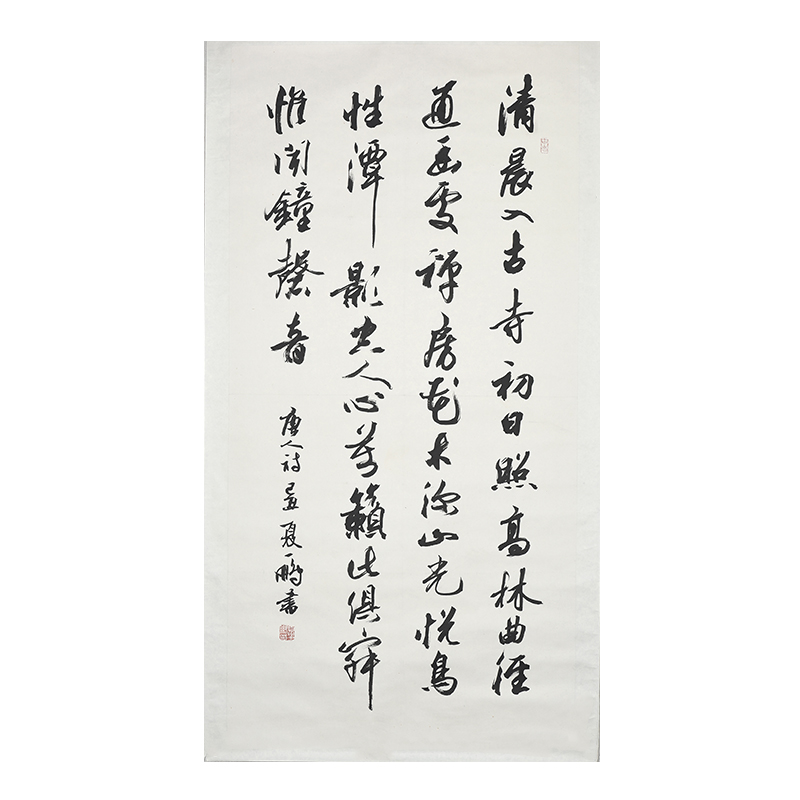 清晨入古寺初日照高林曲徑
通幽處禪房花木深山光悅鳥
性潭影空人心萬籟此俱寂
惟聞鐘磬音
唐人詩 己丑夏一鵬書